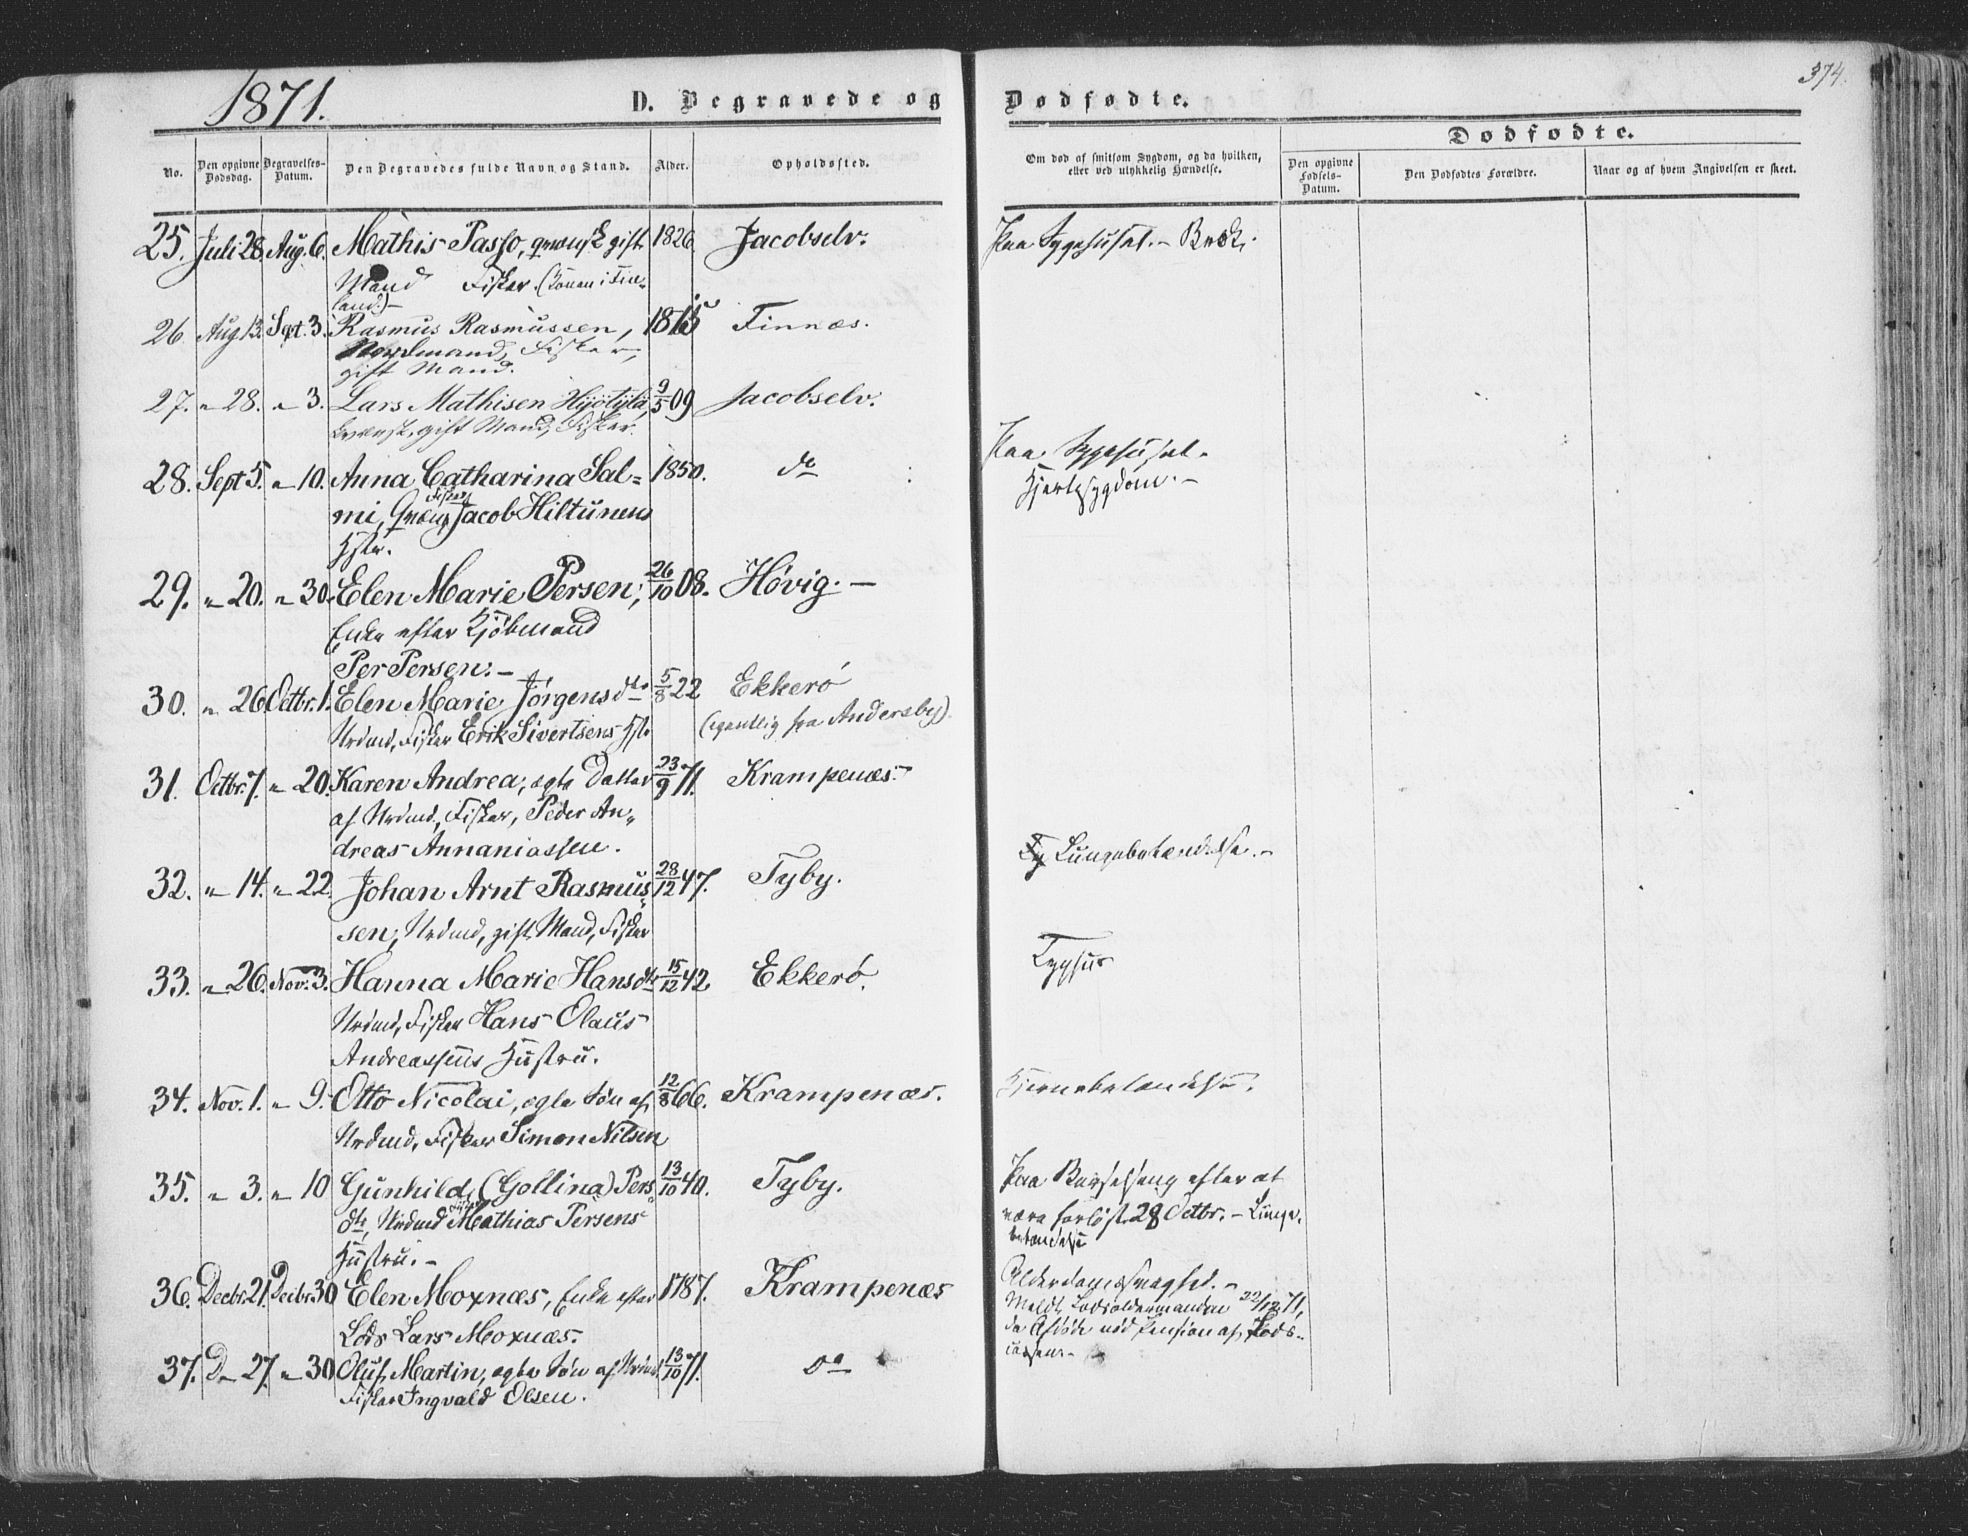 374.
1871.
D. Begravede og Dødfødte.
Dødfødte.
No.
Den opgivne Dødsdag.
Begravelses-Datum.
Den Begravedes fulde Navn og Stand.
Alder.
Opholdssted.
Om død af smitsom Sygdom, og da hvilken,
eller ved ulykkelig Hændelse.
Den opgivne Fødsels-Datum.
Den Dødfødtes Forældre.
Naar og af hvem Angivelsen er skeet.
25. Juli 28. Aug. 6. Mathis Passo, qvænsk gift 1826. Jacobselv. Paa Sygehuset.
Mand Fisker. (Konen i Fin-
land.)
26 Aug 13. Sept. 3. Rasmus Rasmussen, 1815 Finnæs.
Nordmand, Fisker,
gift Mand.
27. " 28. " 3. Lars Mathisen Hyötylä, 9/5 09 Jacobselv.
kvænsk, gift Mand, Fisker.
28. Sept 5. " 10. Anna Catharina Sal= 1850. do Paa Sygehuset.
mi, Qvæn, Fisker Jacob Hiltunens Hjertesygdom.
Hstr.
29. " 20. " 30. Elen Marie Persen, 26/10 08. Høvig.
Enke efter Kjøbmand
Per Persen.
30. " 26 Octbr. 1. Elen Marie Jørgensdtr 5/8 22 Ekkerø
Nrdmd, Fisker Erik Sivertsens Hstr (egentlig fra Andersby).
31. Octbr. 7. " 20. Karen Andrea, ægte Datter 23/9 71. Krampenæs.
af Nrdmd, Fisker, Peder An-
dreas Annaniassen.
32. " 14. " 22. Johan Arnt Rasmus 28/12 47. Tyby. Lungebetændelse.
sen, Nrdmd, gift Mand, Fisker
33. " 26. Nov. 3. Hanna Marie Hansdtr 15/12 42. Ekkerø. Typhus
Nrdmd, Fisker Hans Olaus
Andreassens Hustru.
34. Nov. 1. " 9. Otto Nicolai, ægte Søn af 12/8 66. Krampenæs. Hjernebetændelse.
Nrdmd, Fisker Simon Nilsen
35. " 3. " 10 Gunhild (Gollina) Pers 13/10 40. Tyby. Paa Barselseng efter at
dtr, Nrdmd Fisker Mathias Persens være forløst 28 Octbr. - Lunge-
Hustru. betændelse
36. Decbr. 21. Decbr. 30 Elen Moxnæs, Enke efter 1787. Krampenæs Alderdomssvaghed.
Lods Lars Moxnæs. Meldt Lodsoldermanden 22/12 71,
da Afdøde nød Pension af Lods-
cassen.
37. D " 27. " 30 Oluf Martin, ægte Søn af Nrdmd 13/10 71. Do
Fisker Ingvald Olsen.